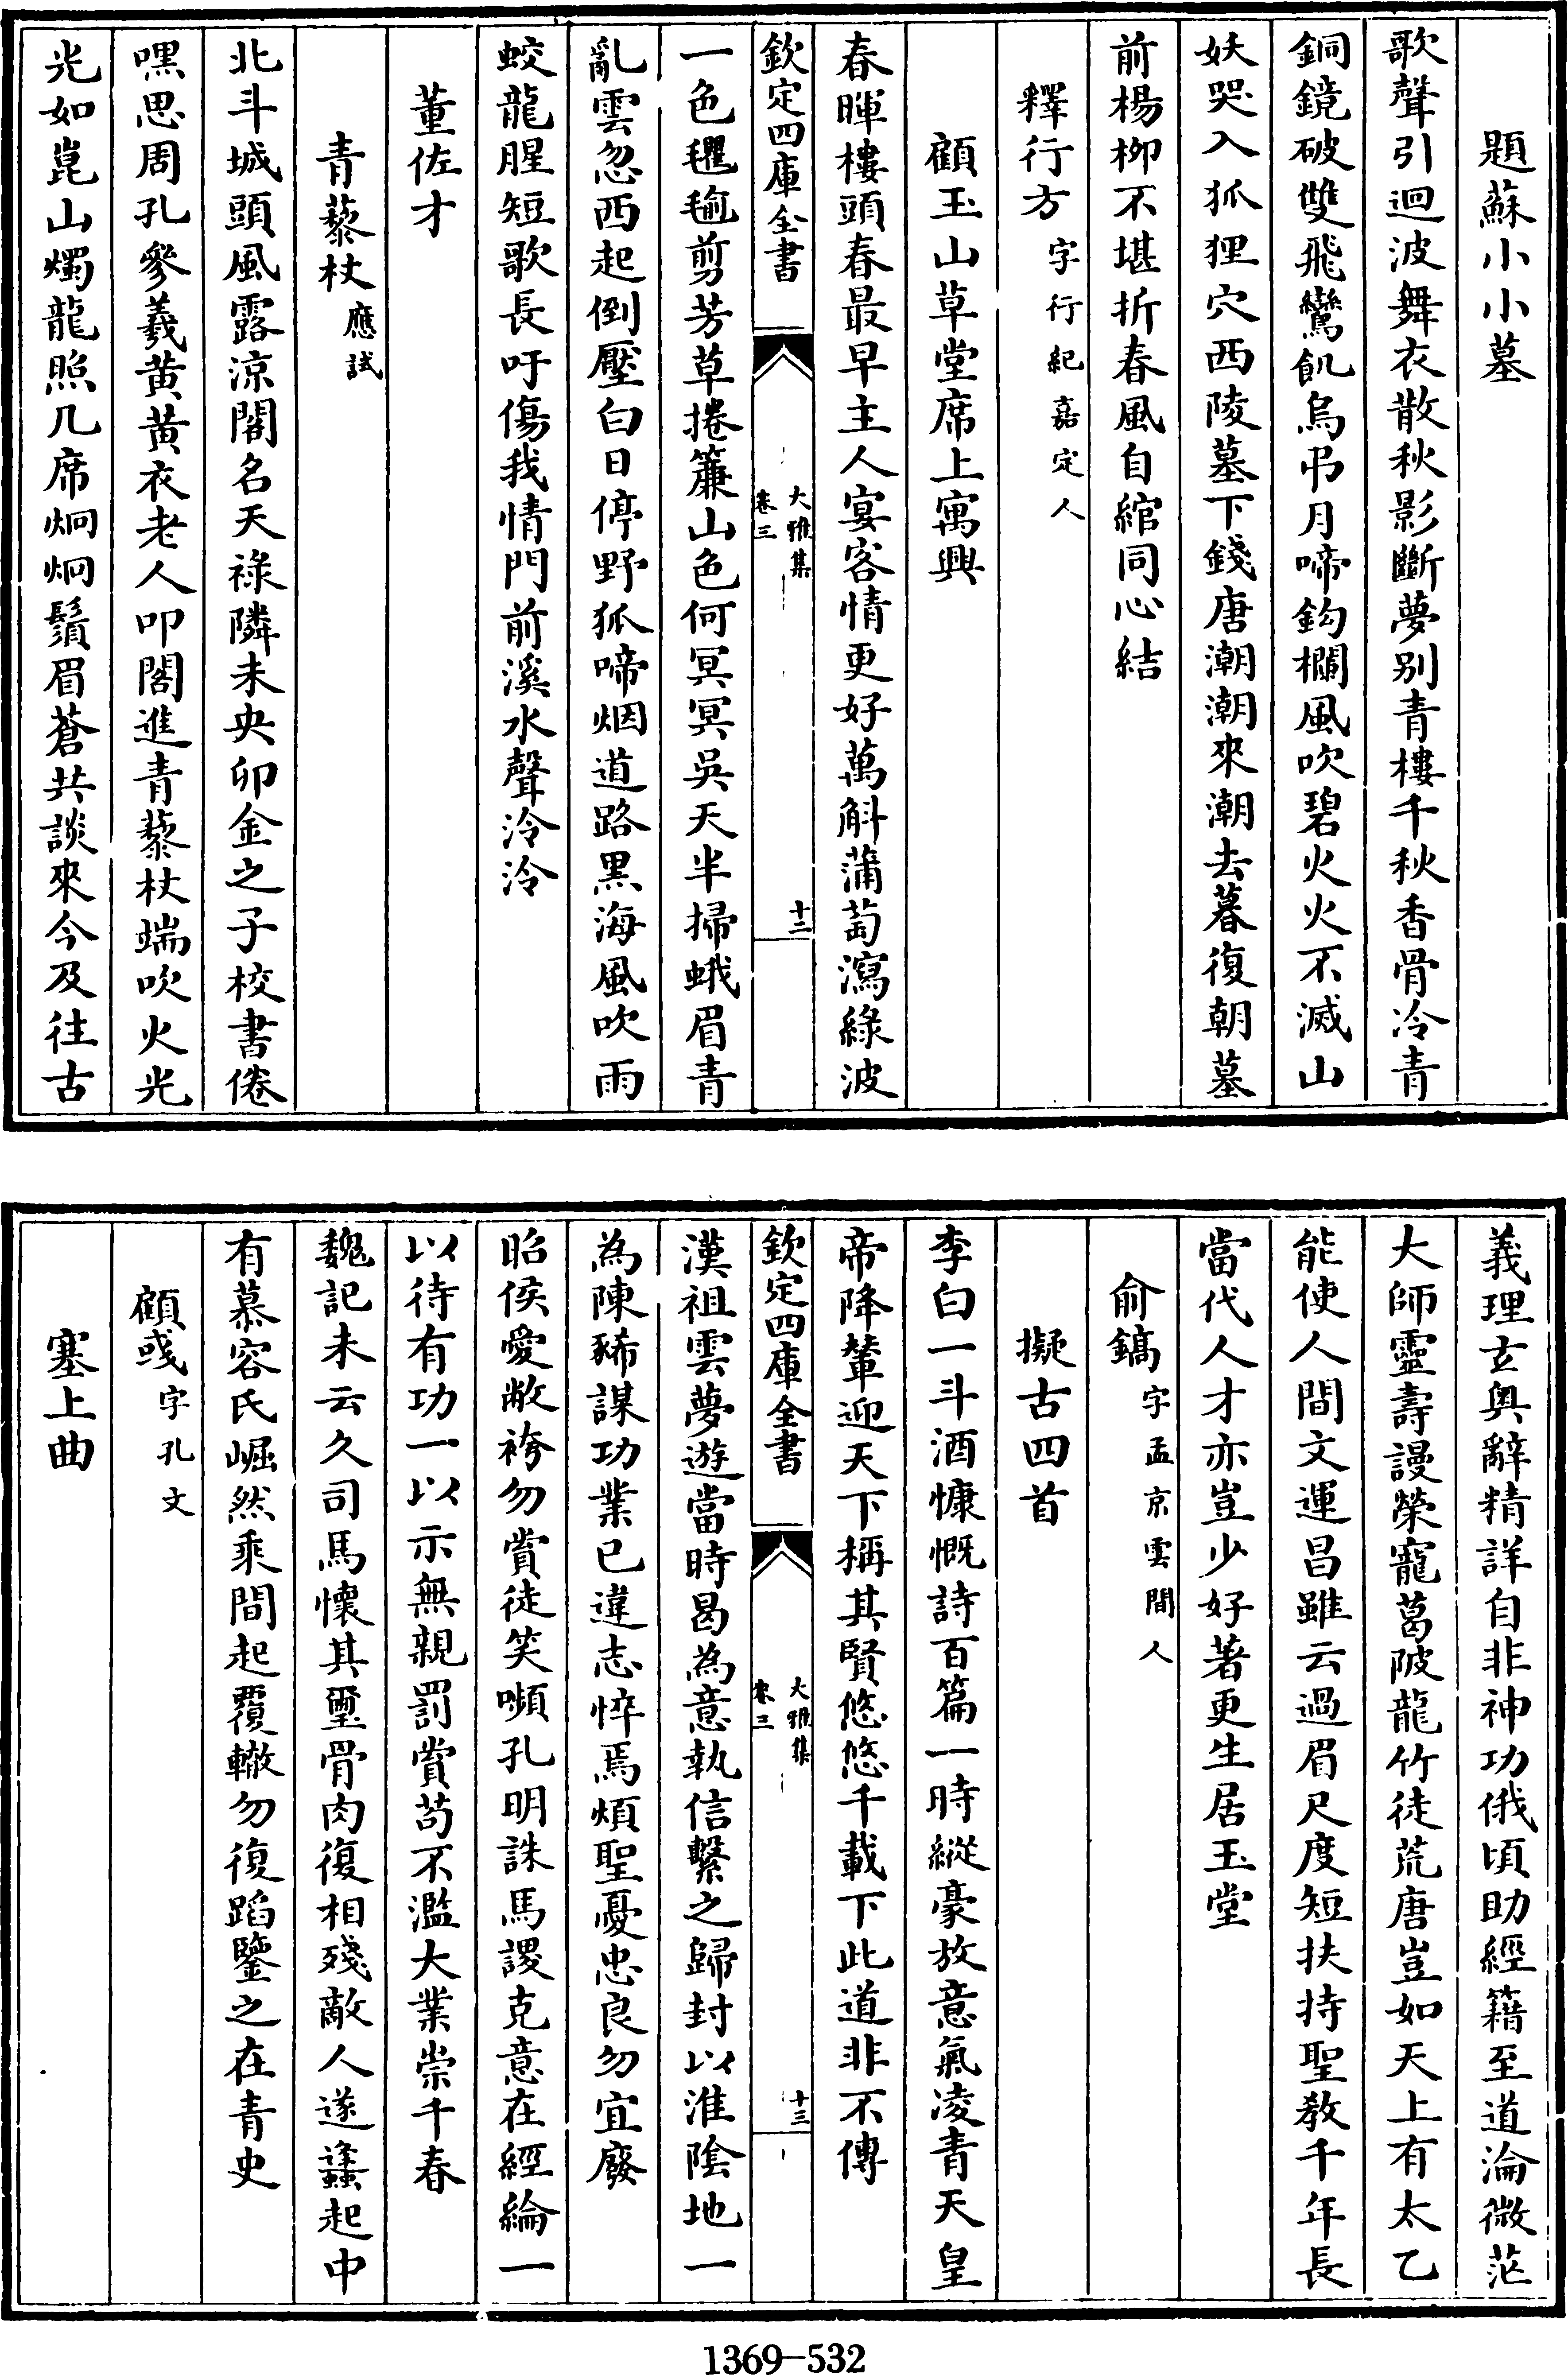 題蘇小小墓
歌聲引迴波舞衣散秋影斷夢别青樓千秋香骨冷青
銅鏡破雙飛鸞飢烏弔月啼鈎欄風吹碧火火不滅山
妖哭入狐狸穴西陵墓下錢唐潮潮來潮去暮復朝墓
前楊栁不堪折春風自綰同心結
釋行方字行紀嘉定人
顧玉山草堂席上寓興
春暉樓頭春最早主人宴客情更好萬斛蒲萄瀉綠波
欽定四庫全書
大雅集
卷三
十二
一色氍毹剪芳草捲簾山色何冥冥吳天半掃蛾眉青
亂雲忽西起倒壓白日停野狐啼烟道路黑海風吹雨
蛟龍腥短歌長吁傷我情門前溪水聲泠泠
董佐才
青藜杖應試
北斗城頭風露涼閣名天祿隣未央卯金之子校書倦
嘿思周孔參羲黄黄衣老人叩閣進青藜杖端吹火光
光如崑山燭龍照几席烱烱鬚眉蒼共談來今及往古
義理玄奥辭精詳自非神功俄頃助經籍至道淪微茫
大師靈壽謾榮寵葛陂龍竹徒荒唐豈如天上有太乙
能使人間文運昌雖云過眉尺度短扶持聖教千年長
當代人才亦豈少好著更生居玉堂
俞鎬字孟京雲間人
擬古四首
李白一斗酒慷慨詩百篇一時縱豪放意氣凌青天皇
帝降輦迎天下稱其賢悠悠千載下此道非不傳
欽定四庫全書
大雅集
卷三
十三
漢祖雲夢遊當時曷為意執信繫之歸封以淮陰地一
為陳豨謀功業已違志悴焉煩聖憂忠良勿宜廢
昭侯愛敝袴勿賞徒笑嚬孔明誅馬謖克意在經綸一
以待有功一以示無親罰賞苟不濫大業崇千春
魏記未云久司馬懷其璽骨肉復相殘敵人遂蠭起中
有慕容氏崛然乘間起覆轍勿復蹈鑒之在青史
顧彧字孔文
塞上曲
1369-532